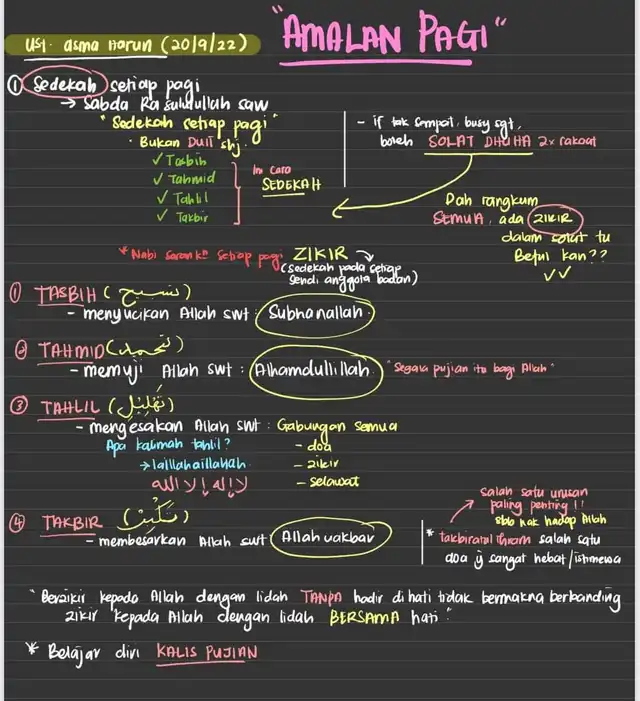 Ust. asma Harun (20/9/22)
"AMALAN PAGI"
① Sedekah setiap pagi
→ Sabda Rasulullah saw
"Sedekah setiap pagi"
• Bukan DUIT shj.
✓ Tasbih
✓ Tahmid
✓ Tahlil
✓ Takbir
Ini cara
SEDEKAH
- if tak sempat, busy sgt,
boleh SOLAT DHUHA 2x rakaat
Dah rangkum
SEMUA, ada ZIKIR
dalam solat tu
Betul kan??
✓✓
* Nabi saranka setiap pagi ZIKIR
(Sedekah pada setiap
sendi anggota badan)
① TASBIH (تسبيح)
- menyucikan Allah swt: Subhanallah.
② TAHMID (تحميد)
- memuji Allah swt : Alhamdulillah "Segala pujian itu bagi Allah"
③ TAHLIL (تَهْلِيْل)
- mengesakan Allah swt : Gabungan semua
Apa kalimah tahlil?
→ lailahaillahah.
لا إله إلا الله
- doa
- zikir
- selawat
④ TAKBIR (تَكْبِيْر)
- membesarkan Allah swt: Allahuakbar
salah satu urusan
paling penting !!
sbb nak hadap Allah
* takbiratul ihram salah satu
doa y sangat hebat/istimewa
"Berzikir kepada Allah dengan lidah TANPA hadir di hati tidak bermakna berbanding
zikir kepada Allah dengan lidah BERSAMA hati."
* Belajar diri KALIS PUJIAN